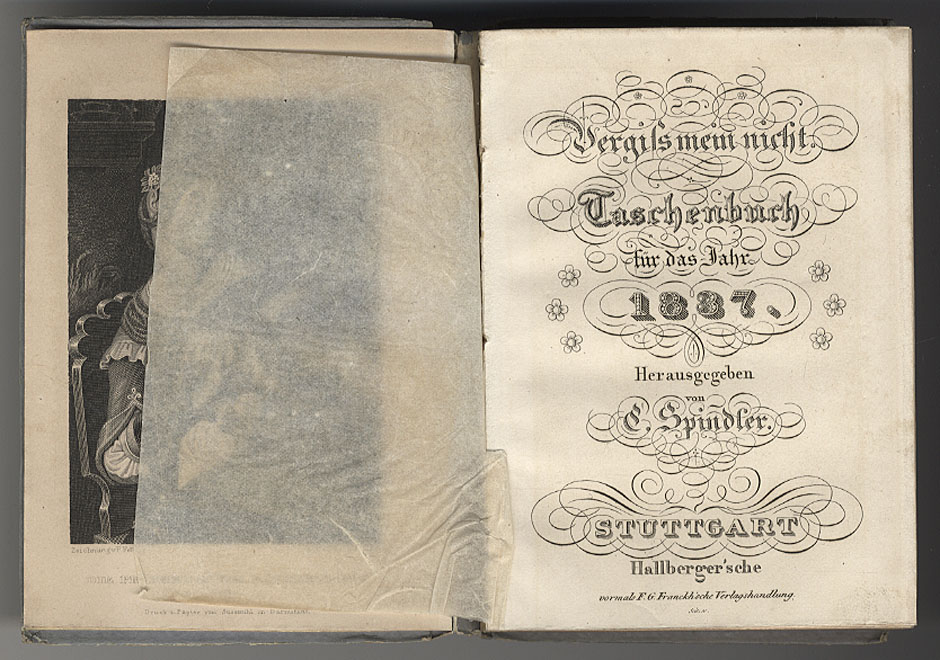 Zeichnung v. F.
Druck u. Papier von in Darmstadt.
Vergiſs mein nicht.
Taschenbuch
für das Jahr
1837.
Herausgegeben
von
C. Spindler.
STUTTGART
Hallberger'sche
vormals F. G. Franckh'sche Verlagshandlung.